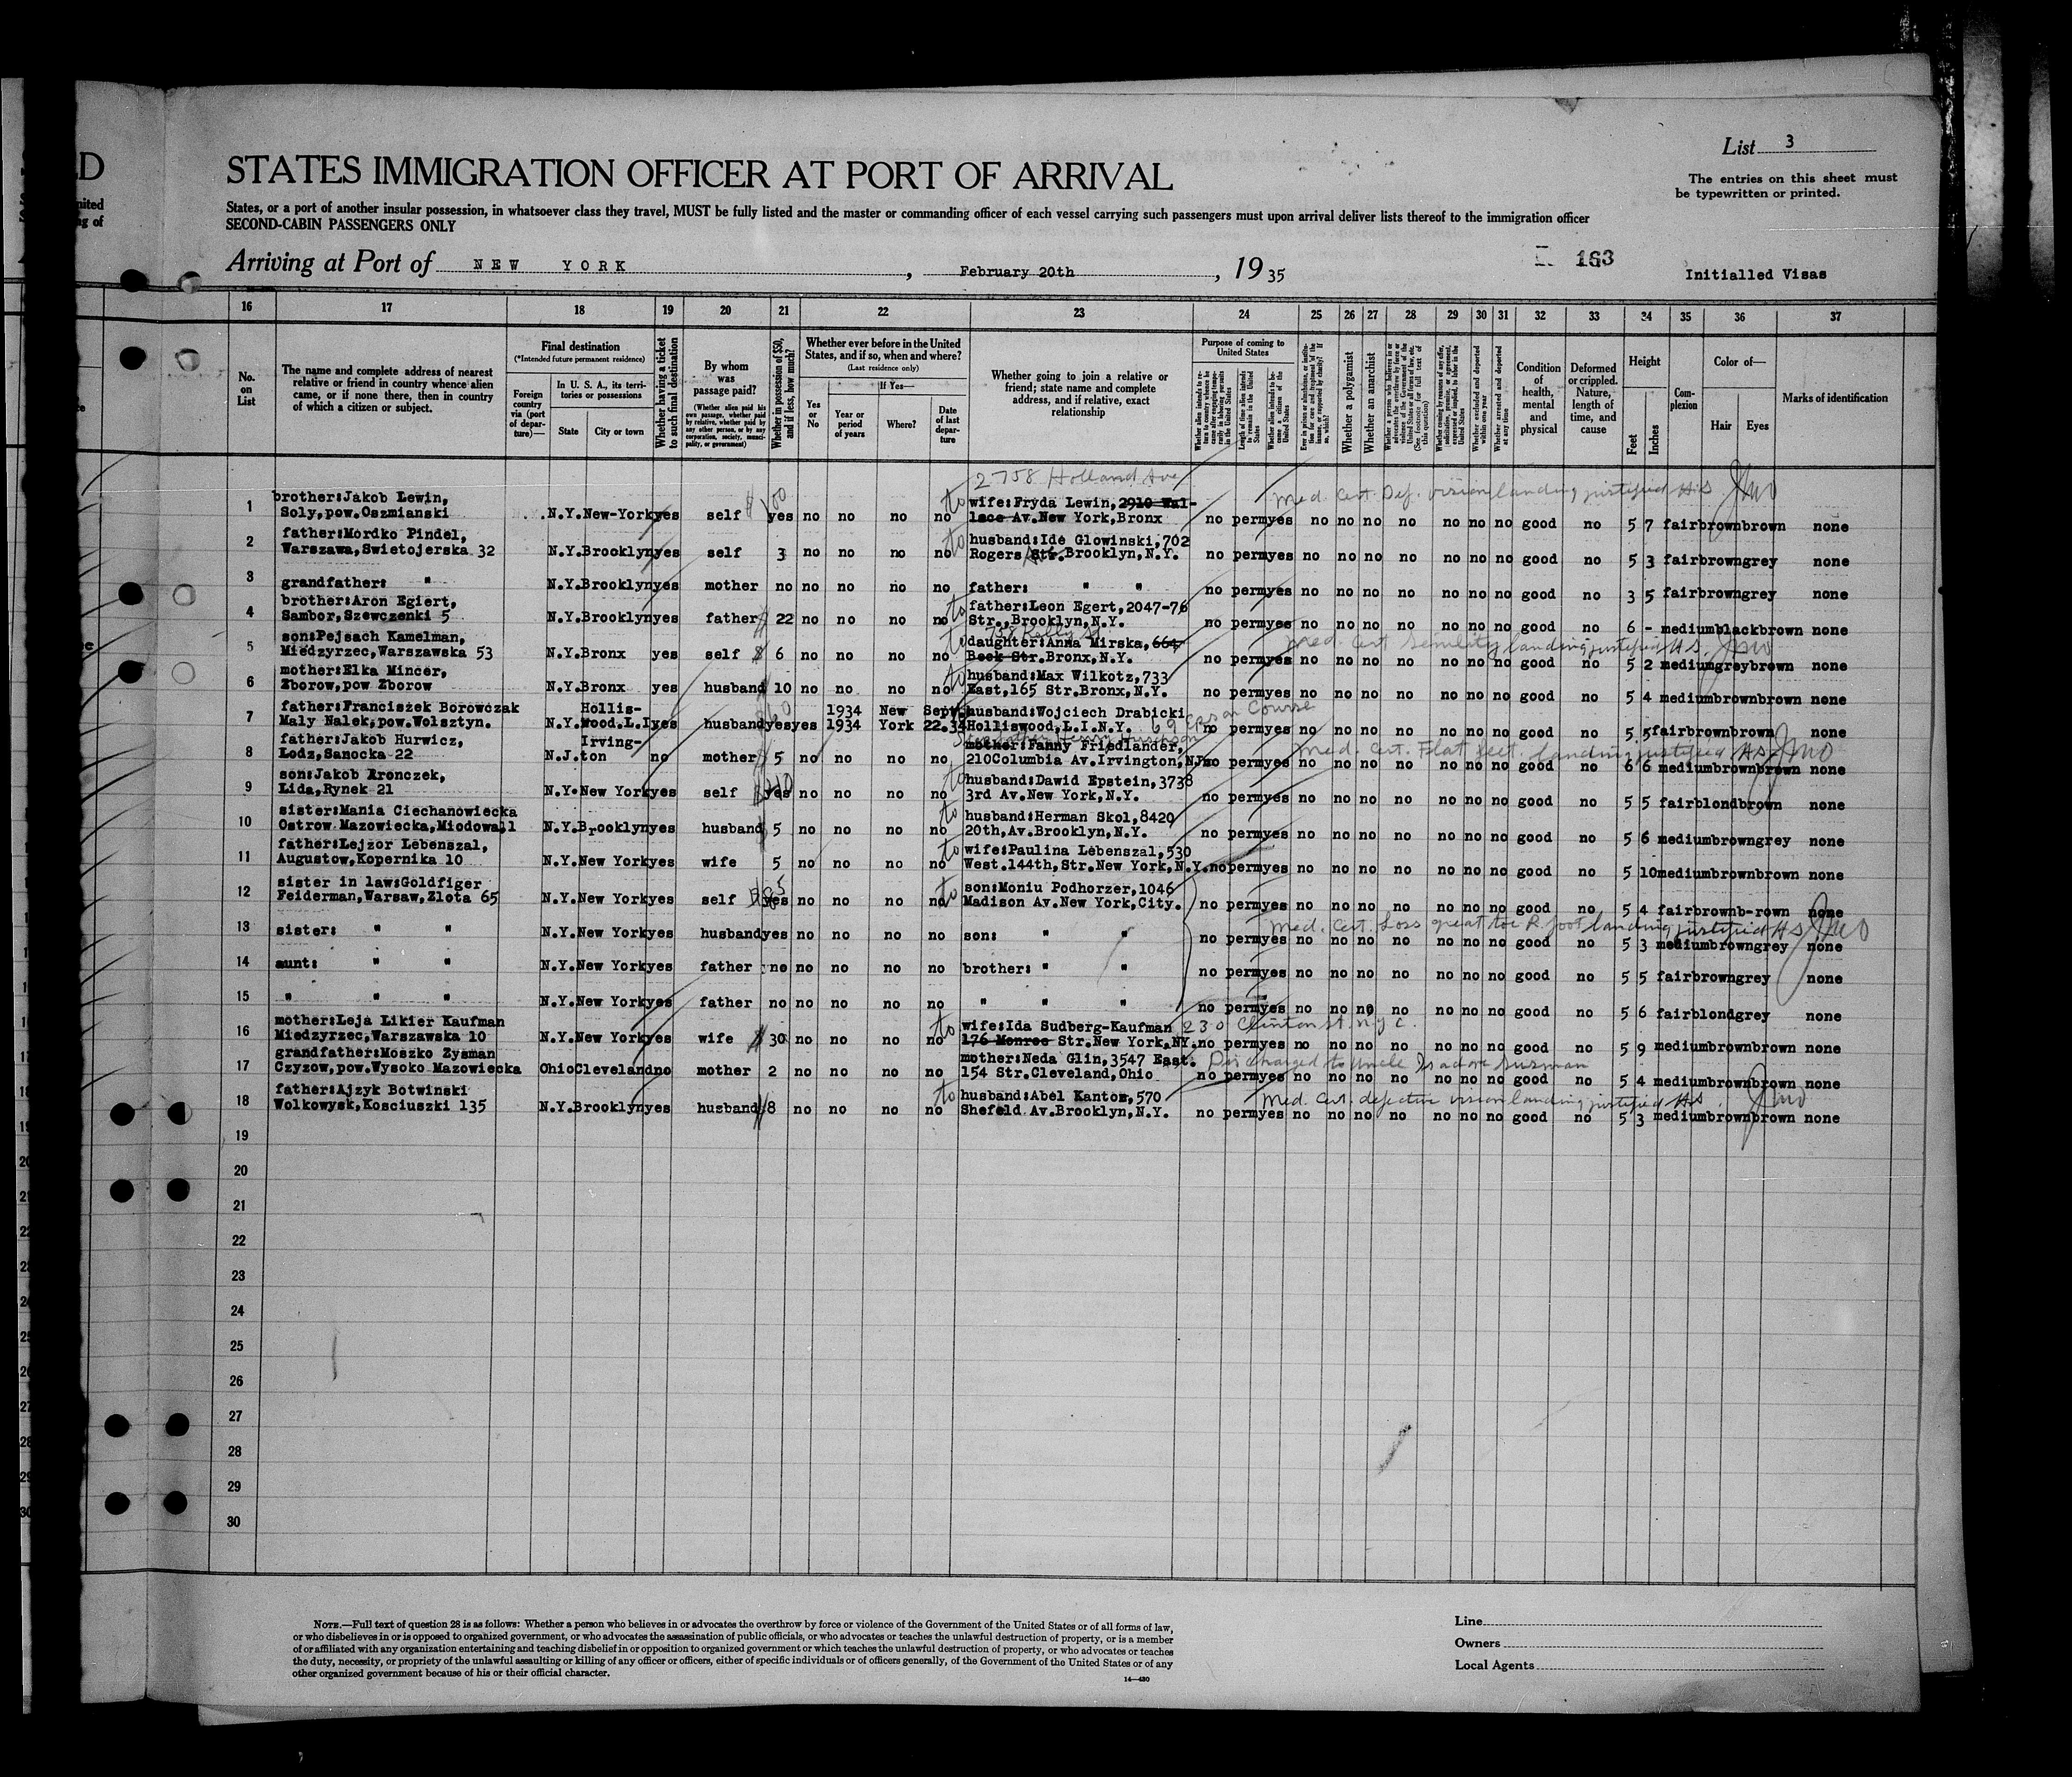 List 3
STATES IMMIGRATION OFFICER AT PORT OF ARRIVAL
The entries on this sheet must
be typewritten or printed.
States, or a port of another insular possession, in whatsoever class they travel, MUST be fully listed and the master or commanding officer of each vessel carrying such passengers must upon arrival deliver lists thereof to the immigration officer
SECOND-CABIN PASSENGERS ONLY
Arriving at Port of NEW YORK, February 20th, 1935
163
Initialled Visas
16 17 18 19 20 21 22 23 24 25 26 27 28 29 30 31 32 33 34 35 36 37
No. on List
The name and complete address of nearest relative or friend in country whence alien came, or if none there, then in country of which a citizen or subject.
Final destination
(*Intended future permanent residence)
Foreign country via (port of departure)—
In U. S. A., its territories or possessions
State City or town
Whether having a ticket to such final destination
By whom was passage paid?
(Whether alien paid his own passage, whether paid by relative, whether paid by any other person, or by any corporation, society, municipality, or government)
Whether in possession of $50, and if less, how much?
Whether ever before in the United States, and if so, when and where?
(Last residence only)
Yes or No
If Yes—
Year or period of years Where? Date of last departure
Whether going to join a relative or friend; state name and complete address, and if relative, exact relationship
Purpose of coming to United States
Whether a polygamist
Whether an anarchist
Condition of health, mental and physical
Deformed or crippled. Nature, length of time, and cause
Height
Feet Inches
Complexion
Color of—
Hair Eyes
Marks of identification
2758 Holland Ave
Med. Cert. Def. vision landing justified HS
1 brother:Jakob Lewin, Soly,pow.Oszmianski N.Y. New-York yes self $100 yes no no no no to wife:Fryda Lewin,2910 Wallace Av.New York,Bronx no perm yes no no no no no no no good no 5 7 fair brown brown none
2 father:Mordko Pindel, Warszawa,Swietojerska 32 N.Y. Brooklyn yes self 3 no no no no to husband:Ide Glowinski,702 Rogers Str.Brooklyn,N.Y. no perm yes no no no no no no no good no 5 3 fair brown grey none
3 grandfather: " N.Y. Brooklyn yes mother no no no no no father: " " no perm yes no no no no no no no good no 3 5 fair brown grey none
4 brother:Aron Egiert, Sambor,Szewczenki 5 N.Y. Brooklyn yes father $ 22 no no no no to father:Leon Egert,2047-76 Str.,Brooklyn,N.Y. no perm yes no no no no no no no good no 6 - medium black brown none
738 Kelly St
Med. Cert Senility landing justified HS
5 son:Pejsach Kamelman, Miedzyrzec,Warszawska 53 N.Y. Bronx yes self $ 6 no no no no to daughter:Anna Mirska,664 Beck Str.Bronx,N.Y. no perm yes no no no no no no no good no 5 2 medium grey brown none
6 mother:Elka Mincer, Zborow,pow Zborow N.Y. Bronx yes husband 10 no no no no to husband:Max Wilkotz,733 East,165 Str.Bronx,N.Y. no perm yes no no no no no no no good no 5 4 medium brown brown none
7 father:Franciszek Borowczak Maly Nalek,pow.Wolsztyn. N.Y. Hollis-wood.L.I yes husband yes yes 1934 1934 New York Sept. 22.34 husband:Wojciech Drabicki Holliswood,L.I.N.Y. no perm yes no no no no no no no good no 5 5 fair brown brown none
Med. Cert. Flat feet. landing justified HS
8 father:Jakob Hurwicz, Lodz,Sanocka 22 N.J. Irvington no mother $ 5 no no no no mother:Fanny Friedlander, 210Columbia Av.Irvington,NJ no perm yes no no no no no no no good no 6 6 medium brown brown none
9 son:Jakob Aronczek, Lida,Rynek 21 N.Y. New York yes self yes no no no no to husband:Dawid Epstein,3738 3rd Av.New York,N.Y. no perm yes no no no no no no no good no 5 5 fair blond brown none
10 sister:Mania Ciechanowiecka Ostrow Mazowiecka,Miodowa,1 N.Y. Brooklyn yes husband $ 5 no no no no to husband:Herman Skol,8420 20th,Av.Brooklyn,N.Y. no perm yes no no no no no no no good no 5 6 medium brown grey none
11 father:Lejzor Lebenszal, Augustow,Kopernika 10 N.Y. New York yes wife 5 no no no no to wife:Paulina Lebenszal,530 West.144th,Str.New York,N.Y. no perm yes no no no no no no no good no 5 10 medium brown brown none
12 sister in law:Goldfiger Feiderman,Warsaw,Zlota 65 N.Y. New York yes self yes no no no no to son:Moniu Podhorzer,1046 Madison Av.New York,City. no perm yes no no no no no no no good no 5 4 fair brown b-rown none
Med. Cert. Loss great toe R. foot landing justified HS
13 sister: " " N.Y. New York yes husband yes no no no no son: " " no perm yes no no no no no no no good no 5 3 medium brown grey none
14 aunt: " " N.Y. New York yes father no no no no no brother: " " no perm yes no no no no no no no good no 5 5 fair brown grey none
15 " " " N.Y. New York yes father no no no no no " " " no perm yes no no no no no no no good no 5 6 fair blond grey none
16 mother:Leja Likier Kaufman Miedzyrzec,Warszawska 10 N.Y. New York yes wife $ 30 no no no no to wife:Ida Sudberg-Kaufman 230 Clinton St. N.Y.C. 176 Monroe Str.New York,NY. no perm yes no no no no no no no good no 5 9 medium brown brown none
17 grandfather:Moszko Zysman Czyzow,pow.Wysoko Mazowiecka Ohio Cleveland no mother 2 no no no no mother:Neda Glin,3547 East. 154 Str.Cleveland,Ohio Discharged to uncle Isadore Susman no perm yes no no no no no no no good no 5 4 medium brown brown none
Med. Cert. defective vision landing justified HS
18 father:Ajzyk Botwinski Wolkowysk,Kosciuszki 135 N.Y. Brooklyn yes husband $ 8 no no no no to husband:Abel Kantor,570 Shefeld Av.Brooklyn,N.Y. no perm yes no no no no no no no good no 5 3 medium brown brown none
19
20
21
22
23
24
25
26
27
28
29
30
NOTE.—Full text of question 28 is as follows: Whether a person who believes in or advocates the overthrow by force or violence of the Government of the United States or of all forms of law,
or who disbelieves in or is opposed to organized government, or who advocates the assassination of public officials, or who advocates or teaches the unlawful destruction of property, or is a member
of or affiliated with any organization entertaining and teaching disbelief in or opposition to organized government or which teaches the unlawful destruction of property, or who advocates or teaches
the duty, necessity, or propriety of the unlawful assaulting or killing of any officer or officers, either of specific individuals or of officers generally, of the Government of the United States or of any
other organized government because of his or their official character.
14—430
Line
Owners
Local Agents